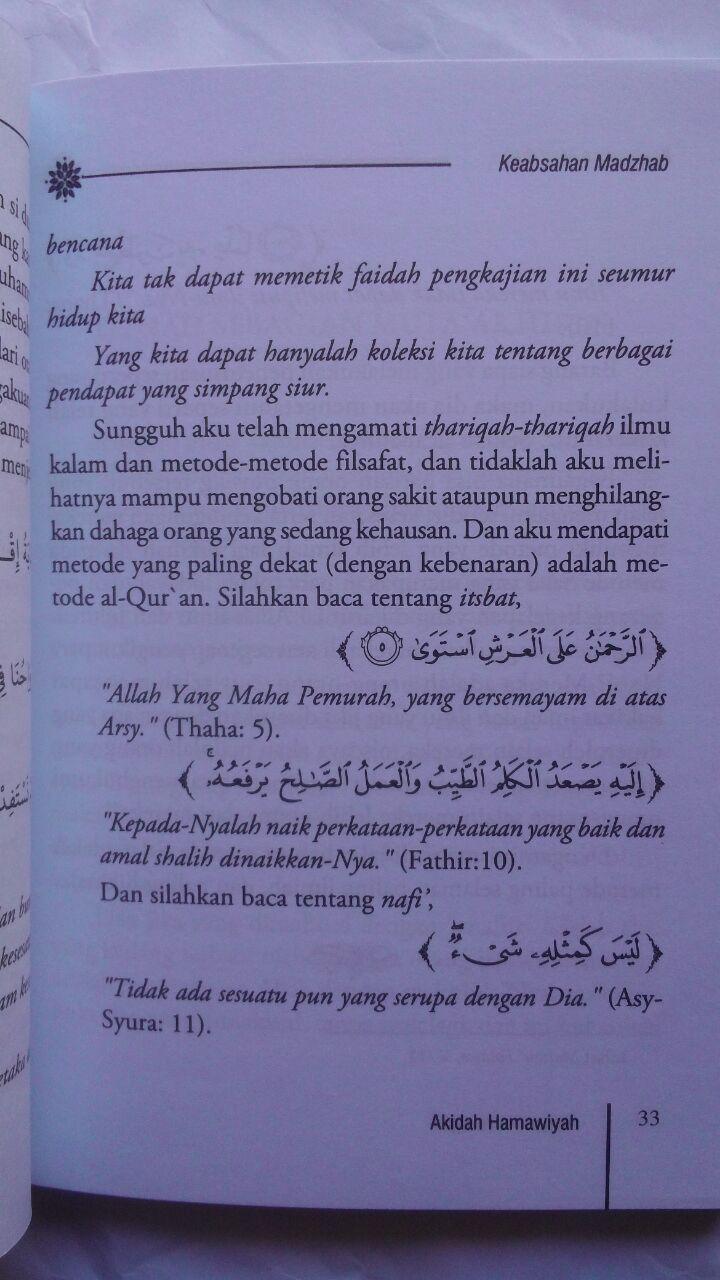 Keabsahan Madzhab
bencana
Kita tak dapat memetik faidah pengkajian ini seumur
hidup kita
Yang kita dapat hanyalah koleksi kita tentang berbagai
pendapat yang simpang siur.
Sungguh aku telah mengamati thariqah-thariqah ilmu
kalam dan metode-metode filsafat, dan tidaklah aku meli-
hatnya mampu mengobati orang sakit ataupun menghilang-
kan dahaga orang yang sedang kehausan. Dan aku mendapati
metode yang paling dekat (dengan kebenaran) adalah me-
tode al-Qur`an. Silahkan baca tentang itsbat,
﴿ ٱلرَّحْمَـٰنُ عَلَى ٱلْعَرْشِ ٱسْتَوَىٰ ۝٥ ﴾
"Allah Yang Maha Pemurah, yang bersemayam di atas
Arsy." (Thaha: 5).
﴿ إِلَيْهِ يَصْعَدُ ٱلْكَلِمُ ٱلطَّيِّبُ وَٱلْعَمَلُ ٱلصَّـٰلِحُ يَرْفَعُهُۥ ۚ ﴾
"Kepada-Nyalah naik perkataan-perkataan yang baik dan
amal shalih dinaikkan-Nya." (Fathir:10).
Dan silahkan baca tentang nafi',
﴿ لَيْسَ كَمِثْلِهِۦ شَىْءٌ ۖ ﴾
"Tidak ada sesuatu pun yang serupa dengan Dia." (Asy-
Syura: 11).
Akidah Hamawiyah
33